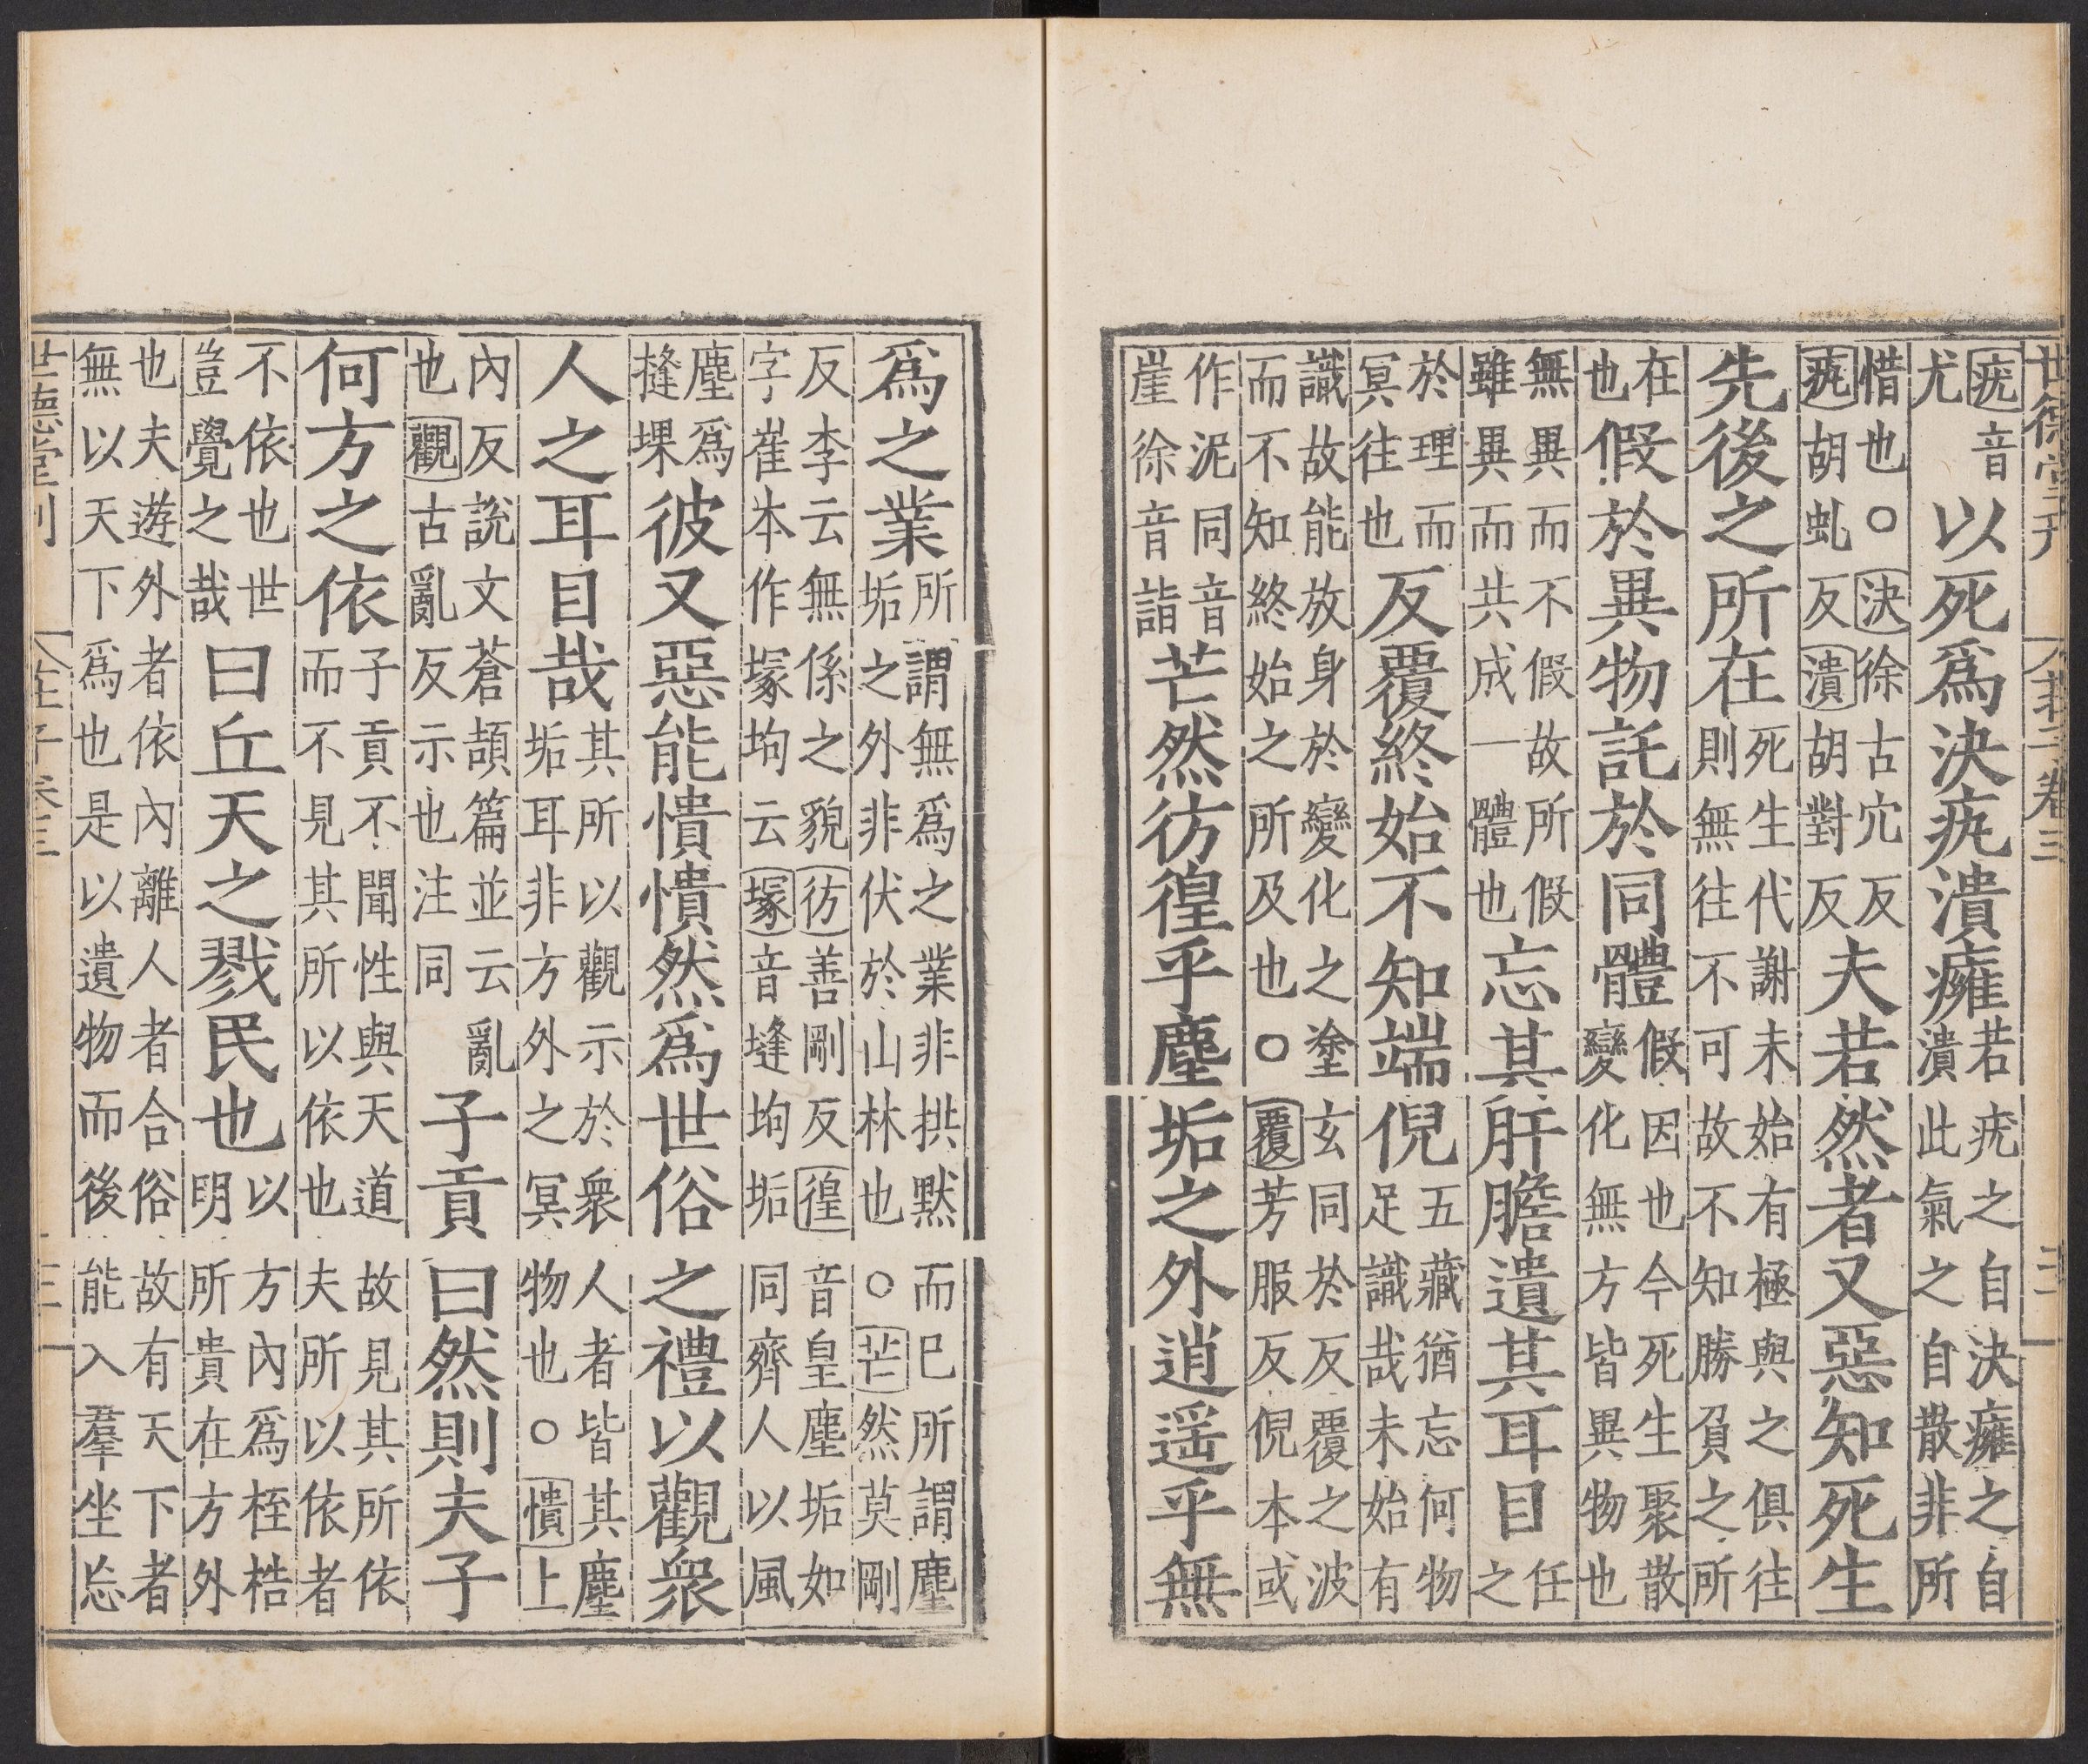 世德堂刊 莊子卷三
疣音
尤
以死爲決𤴯潰癕
若疣之自決癕之自
潰此氣之自散非所
惜也○決徐古穴反
𤴯胡虬反潰胡對反
夫若然者又惡知死生
先後之所在
死生代謝未始有極與之俱往
則無往不可故不知勝負之所
在
也
假於異物託於同體
假因也今死生聚散
變化無方皆異物也
無異而不假故所假
雖異而共成一體也
忘其肝膽遺其耳目
任
之
於理而
冥往也
反覆終始不知端倪
五藏猶忘何物
足識哉未始有
識故能放身於變化之塗玄同於反覆之波
而不知終始之所及也○覆芳服反倪本或
作泥同音
崖徐音詣
芒然彷徨乎塵垢之外逍遥乎無
爲之業
所謂無爲之業非拱默而已所謂塵
垢之外非伏於山林也○芒然莫剛
反李云無係之貌彷善剛反徨音皇塵垢如
字崔本作塚坸云塚音塳坸垢同齊人以風
塵爲
摓堁
彼又惡能憒憒然爲世俗之禮以觀衆
人之耳目哉
其所以觀示於衆人者皆其塵
垢耳非方外之冥物也○憒上
內反説文蒼頡篇並云亂
也觀古亂反示也注同
子貢曰然則夫子
何方之依
子貢不聞性與天道故見其所依
而不見其所以依也夫所以依者
不依也世
豈覺之哉
曰丘天之戮民也
以方內爲桎梏
明所貴在方外
也夫遊外者依內離人者合俗故有天下者
無以天下爲也是以遺物而後能入羣坐忘
世德堂刊 莊子卷三